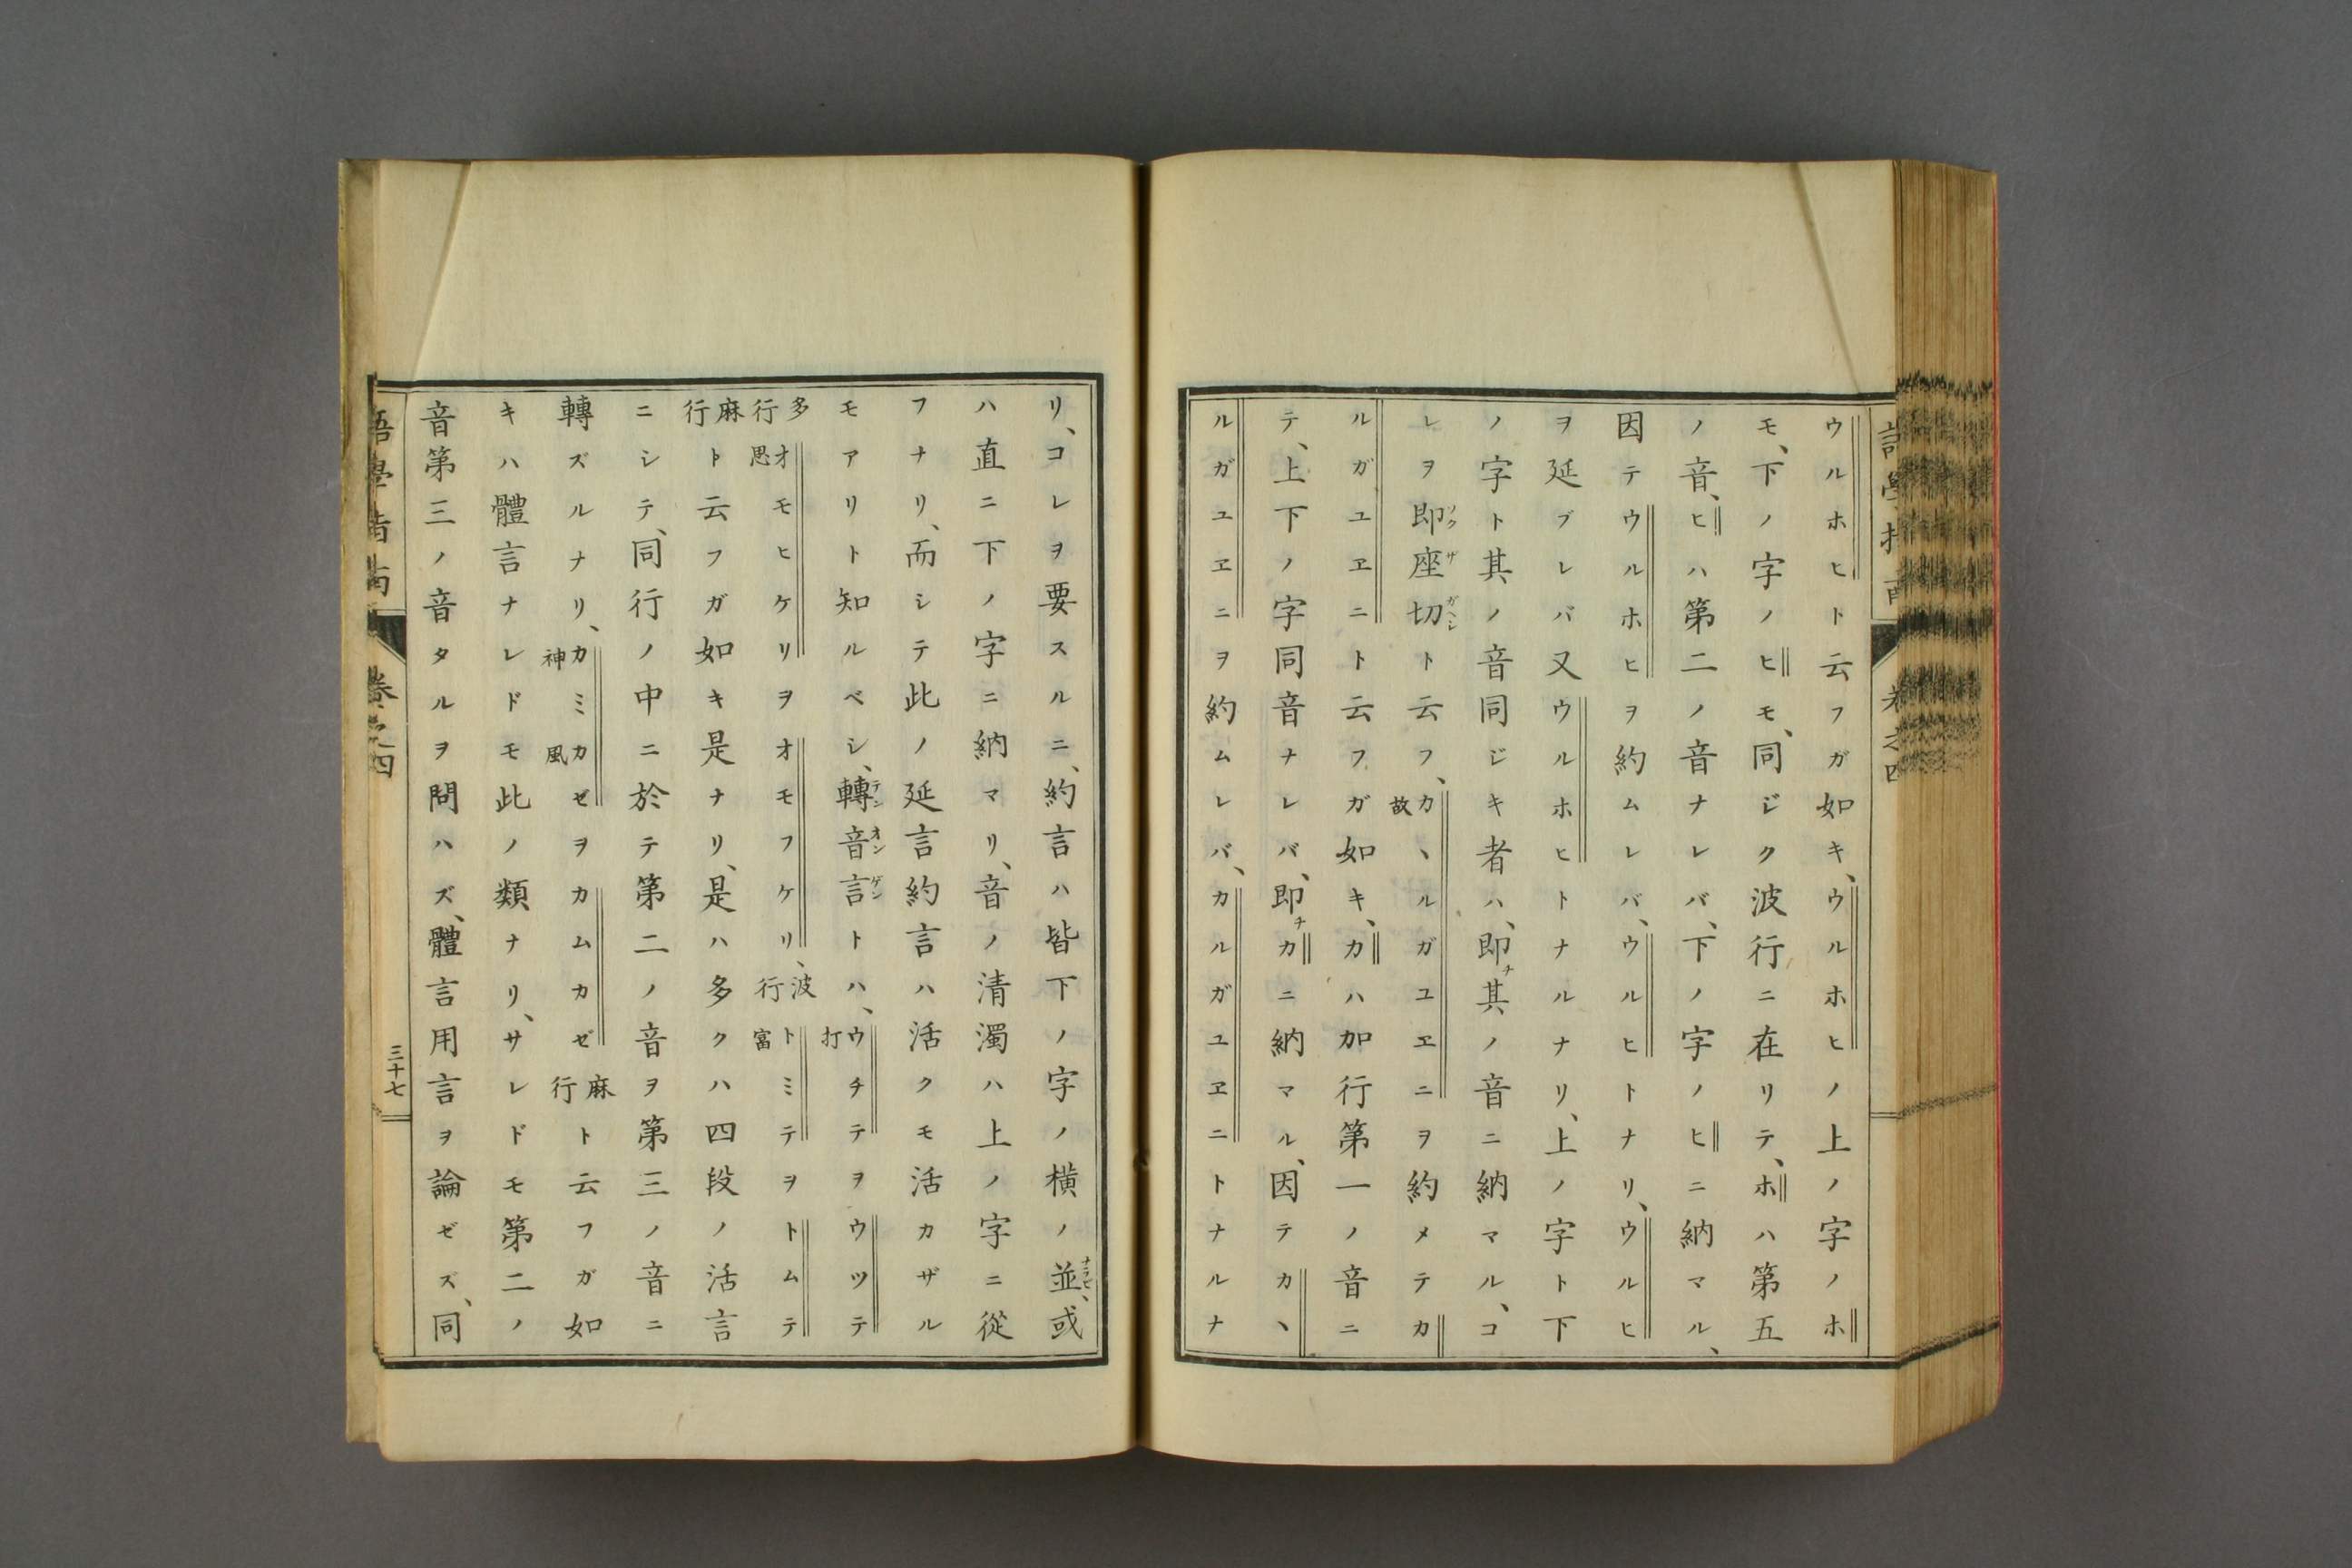 ウルホヒト云フガ如キ、ウルホヒノ上ノ字ノホ
モ、下ノ字ノヒモ、同ジク波行ニ在リテ、ホハ第五
ノ音、ヒハ第二ノ音ナレバ、下ノ字ノヒニ納マル、
因テウルホヒヲ約ムレバ、ウルヒトナリ、ウルヒ
ヲ延ブレバ又ウルホヒトナルナリ、上ノ字ト下
ノ字ト其ノ音同ジキ者ハ、即チ其ノ音ニ納マル、コ
レヲ即座切ソクザガヘシト云フ、カヽルガユヱニ故ヲ約メテカ
ルガユヱニト云フガ如キ、カハ加行第一ノ音ニ
テ、上下ノ字同音ナレバ、即チカニ納マル、因テカヽ
ルガユヱニヲ約ムレバ、カルガユヱニトナルナ
リ、コレヲ要スルニ、約言ハ皆下ノ字ノ横ノ並ナラビ、或
ハ直ニ下ノ字ニ納マリ、音ノ清濁ハ上ノ字ニ從
フナリ、而シテ此ノ延言約言ハ活クモ活カザル
モアリト知ルベシ、轉音言テンオンゲントハ、ウチテ打ヲウツテ
多行オモヒケリ思ヲオモフケリ、波行トミテ富ヲトムテ
麻行ト云フガ如キ是ナリ、是ハ多クハ四段ノ活言
ニシテ、同行ノ中ニ於テ第二ノ音ヲ第三ノ音ニ
轉ズルナリ、カミカゼ神風ヲカムカゼ麻行ト云フガ如
キハ體言ナレドモ此ノ類ナリ、サレドモ第二ノ
音第三ノ音タルヲ問ハズ、體言用言ヲ論ゼズ、同
語學指南
卷之四
三十七